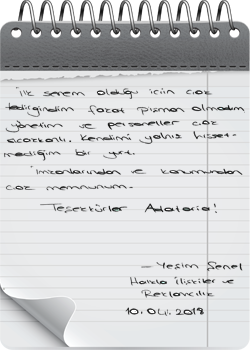 İlk senem olduğu için çok
tedirgindim fakat pişman olmadım
yönetim ve personeller çok
sıcakkanlı. Kendimi yalnız hisset-
mediğim bir yurt.
İmkanlarından ve konumundan
çok memnunum.
Teşekkürler Adatoria!
- Yeşim Şenel
Halkla İlişkiler ve
Reklamcılık
10.04.2018